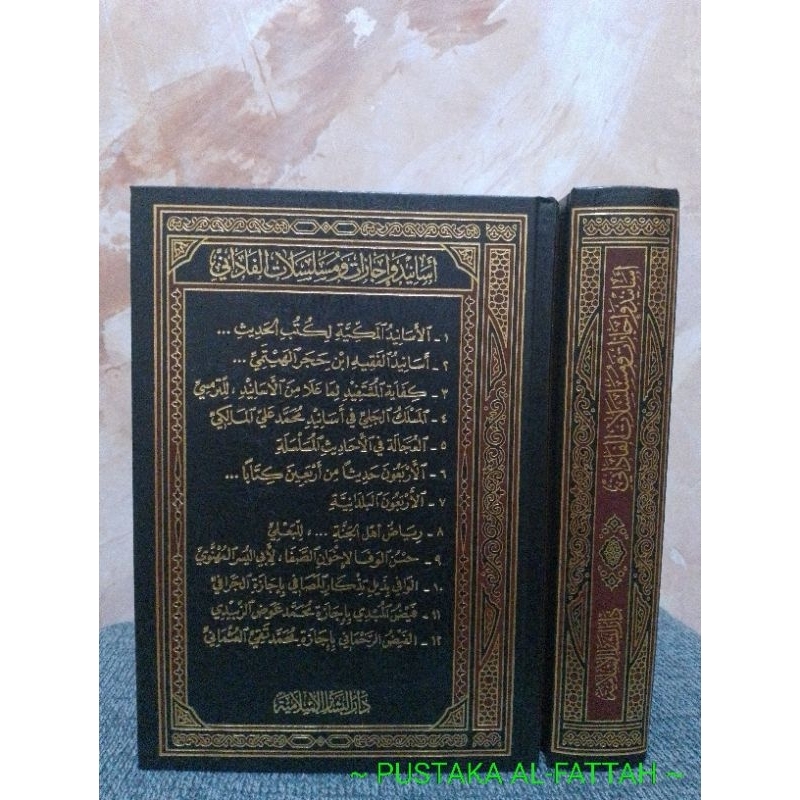 أسانيد وإجازات ومسلسلات الفاداني
١ - الأَسَانِيدُ المَكِّيَّة لِكُتُبِ الحَدِيثِ ...
٢ - أَسَانِيدُ الفَقِيهِ ابْنِ حَجَرٍ الهَيْتَمِيِّ ...
٣ - كِفَايَةُ المُسْتَفِيدِ لِمَا عَلَا مِنَ الأَسَانِيدِ، لِلتِّرْمِسِيّ
٤ - المَسْلَكُ الجَلِيُّ فِي أَسَانِيدِ مُحَمَّد عَلِيّ المَالِكِيِّ
٥ - العُجَالَةُ فِي الأَحَادِيثِ المُسَلْسَلَةِ
٦ - الأَرْبَعُونَ حَدِيثًا مِن أَرْبَعِينَ كِتَابًا...
٧ - الأَرْبَعُونَ البُلْدَانِيَّة
٨ - رِيَاضُ أَهْلِ الجَنَّةِ ...، لِلبَعْلِيِّ
٩ - حُسْنُ الوَفَا لإِخْوَانِ الصَّفَا، لِأَبِي اليُسْرِ المَهْنَوِيّ
١٠ - الوَافِي بِذَيْلِ تِذْكَارِ المَصَافِي بِإِجَازَةِ الجِرَافِيّ
١١ - فَيْضُ المُبْدِي بِإِجَازَةِ مُحَمَّد عَوَض الزَّبِيدِي
١٢ - الفَيْضُ الرَّحْمَانِي بِإِجَازَةِ مُحَمَّد تَقِيّ العُثْمَانِيّ
دار البشائر الإسلامية
أسانيد وإجازات ومسلسلات الفاداني
دار البشائر الإسلامية
~ PUSTAKA AL FATTAH ~